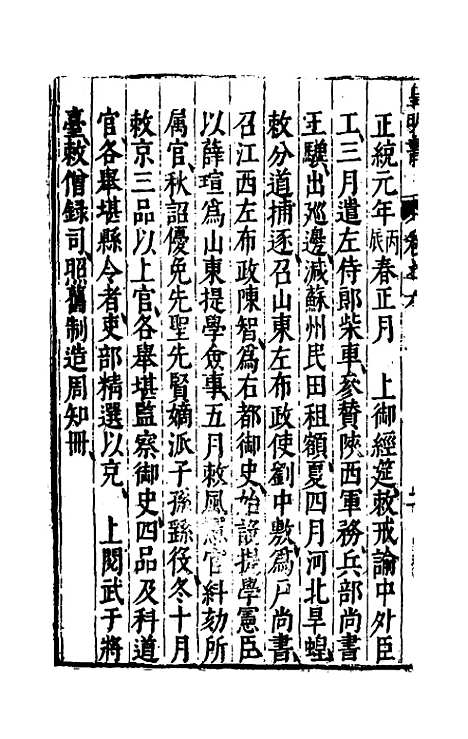 正統元年丙辰春正月　上御經筵敕戒諭中外臣
工三月遣左侍郎柴車參贊陝西軍務兵部尚書
王驥出廵邊減蘇州民田租額夏四月河北旱蝗
敕分道捕逐召山東左布政使劉中敷爲戶尚書
召江西左布政陳智爲右都御史始設提學憲臣
以薛瑄爲山東提學僉事五月敕風憲官糾劾所
属官秋詔優免先聖先賢嫡派子孫繇役冬十月
敕京三品以上官各舉堪監察御史四品及科道
官各舉堪縣令者吏部精選以充　上閱武于將
臺敕僧録司照舊制造周知冊